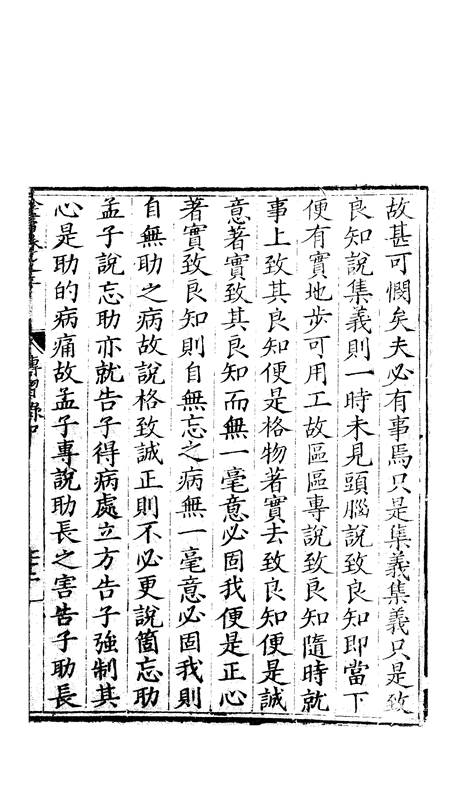 故甚可憫矣夫必有事焉只是集義集義只是致
良知說集義則一時未見頭腦說致良知即當下
便有實地步可用工故區區專說致良知隨時就
事上致其良知便是格物著實去致良知便是誠
意著實致其良知而無一毫意必固我便是正心
著實致良知則自無忘之病無一毫意必固我則
自無助之病故說格致誠正則不必更說箇忘助
孟子說忘助亦就告子得病處立方告子強制其
心是助的病痛故孟子專說助長之害告子助長
傳習錄中